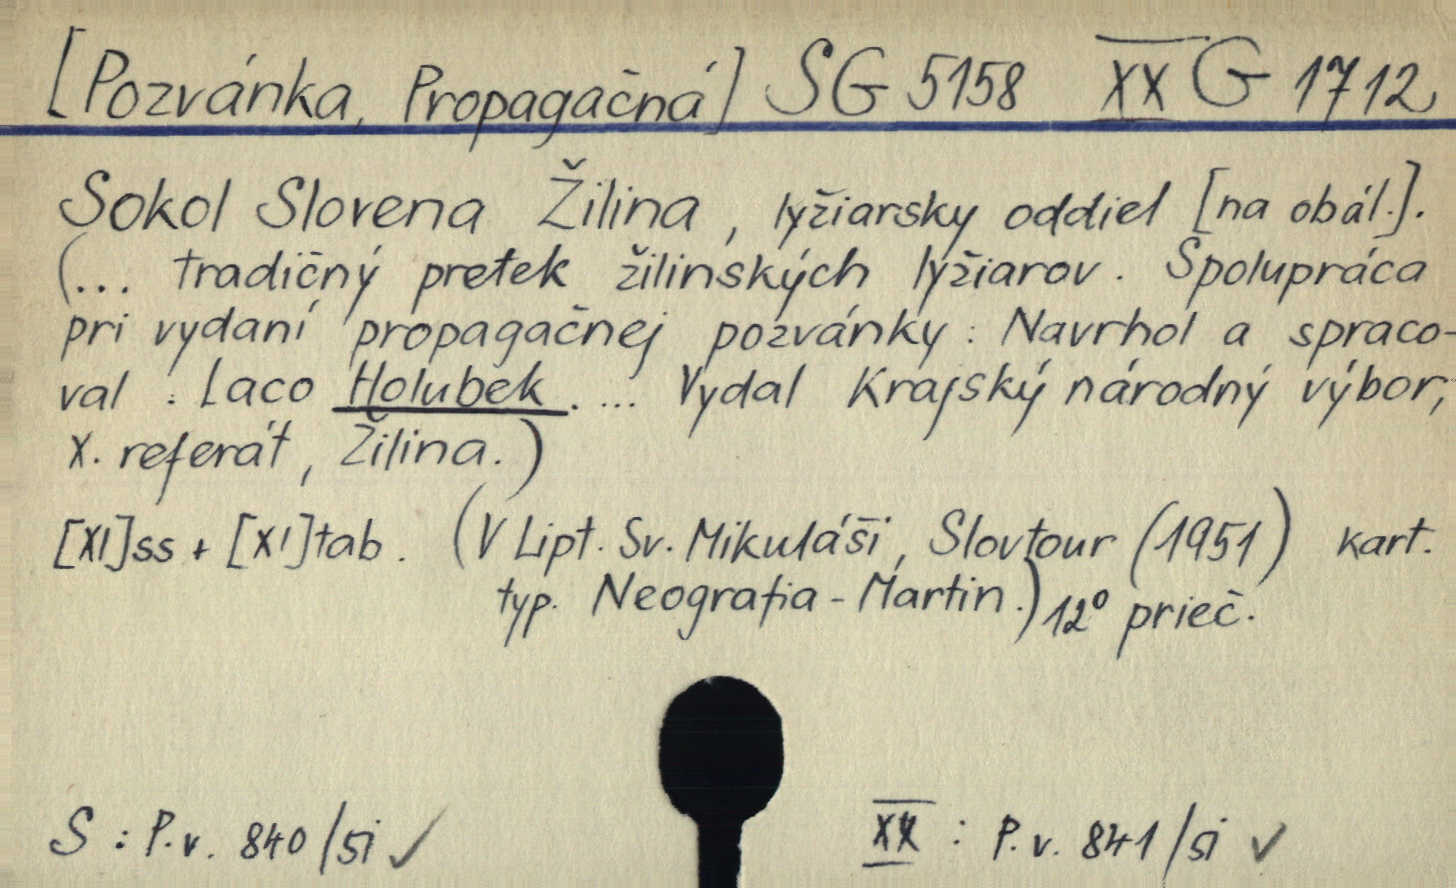 [Pozvánka, Propagačná] SG 5158 XX G 1712
Sokol Slovena Žilina, lyžiarsky oddiel [na obál.].
(... tradičný pretek žilinských lyžiarov. Spolupráca
pri vydaní propagačnej pozvánky: Navrhol a spraco-
val : Laco Holubek. ... Vydal Krajský národný výbor,
X. referát, Žilina.)
[XI]ss + [XI]tab. (V Lipt. Sv. Mikuláši, Slovtour (1951) kart.
typ. Neografia - Martin.) 12° prieč.
S : P. v. 840/si ✓ XX : P. v. 841/si ✓